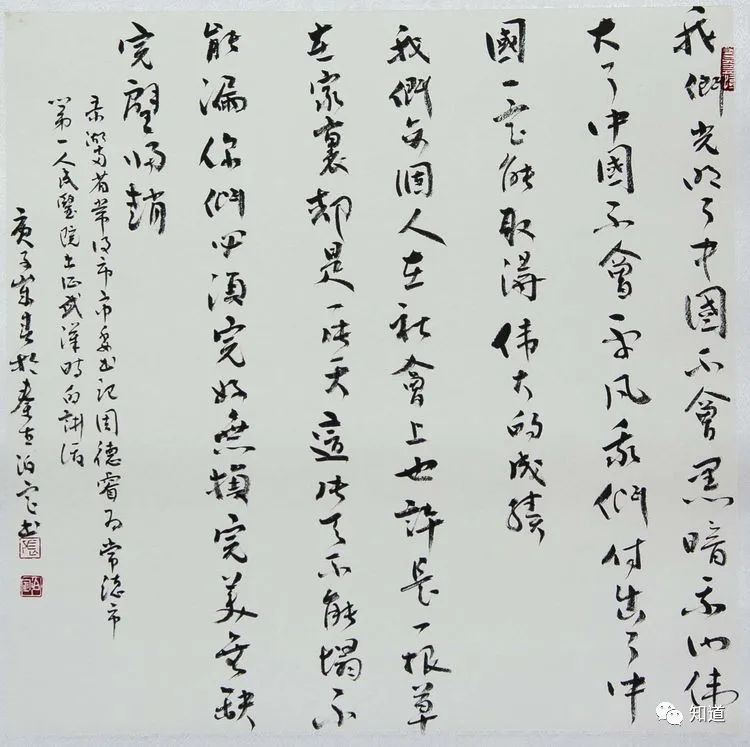 我們光明了中國不會黑暗我們偉
大了中國不會平凡我們付出了中
國一定能取得偉大的成績
我們每個人在社會上也許是一根草
在家裏却是一片天這片天不能塌不
能漏你們必須完好無損完美無缺
完璧歸趙
录湖南省常德市市委書記周德睿為常德市
第一人民醫院出征武漢時的講話
庚子歲春於書
知道